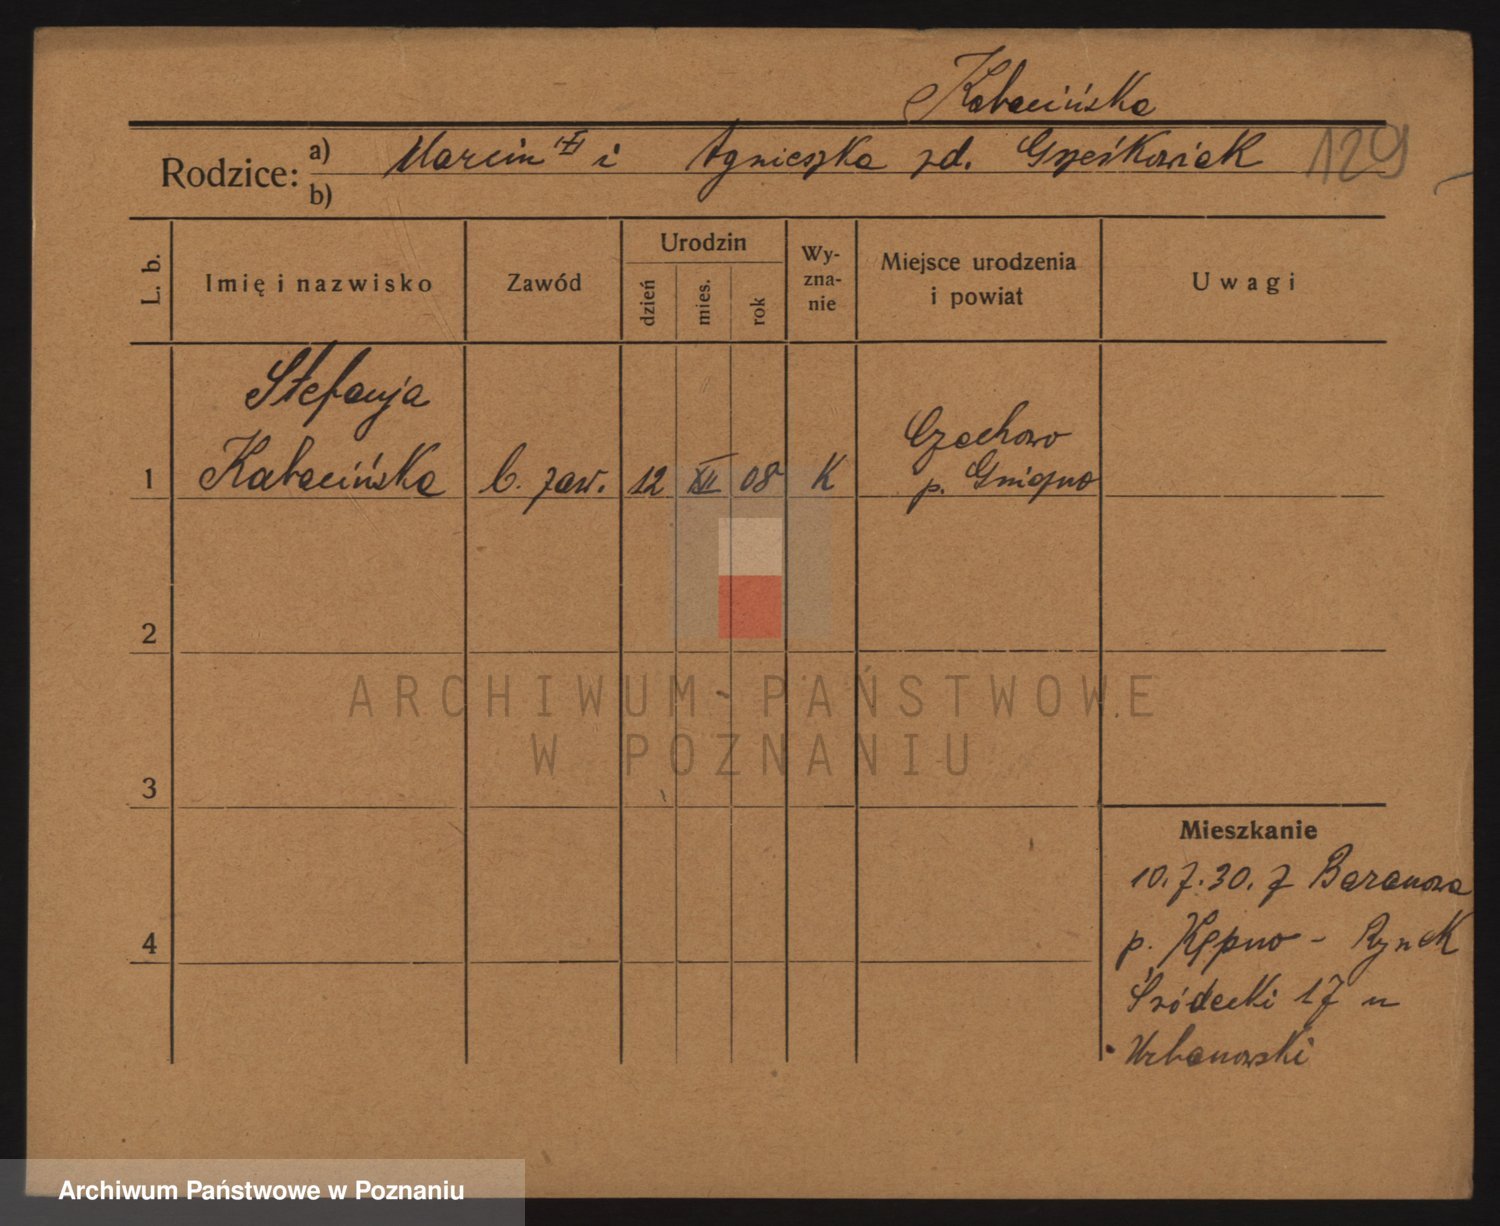 Kabacińska
Rodzice: a) Marcin i Agnieszka zd. Grześkowiak 129
b)
L. b. Imię i nazwisko Zawód Urodzin dzień mies. rok Wy-zna-nie Miejsce urodzenia i powiat Uwagi
Stefanja
1 Kabacińska b. zaw. 12 XII 08 K Czechowo
p. Gniezno
2
ARCHIWUM PAŃSTWOWE
W POZNANIU
3
Mieszkanie
10.7.30. z Baranowa
4 p. Kępno - Rynek
Śródecki 17 u
Urbanowski
Archiwum Państwowe w Poznaniu